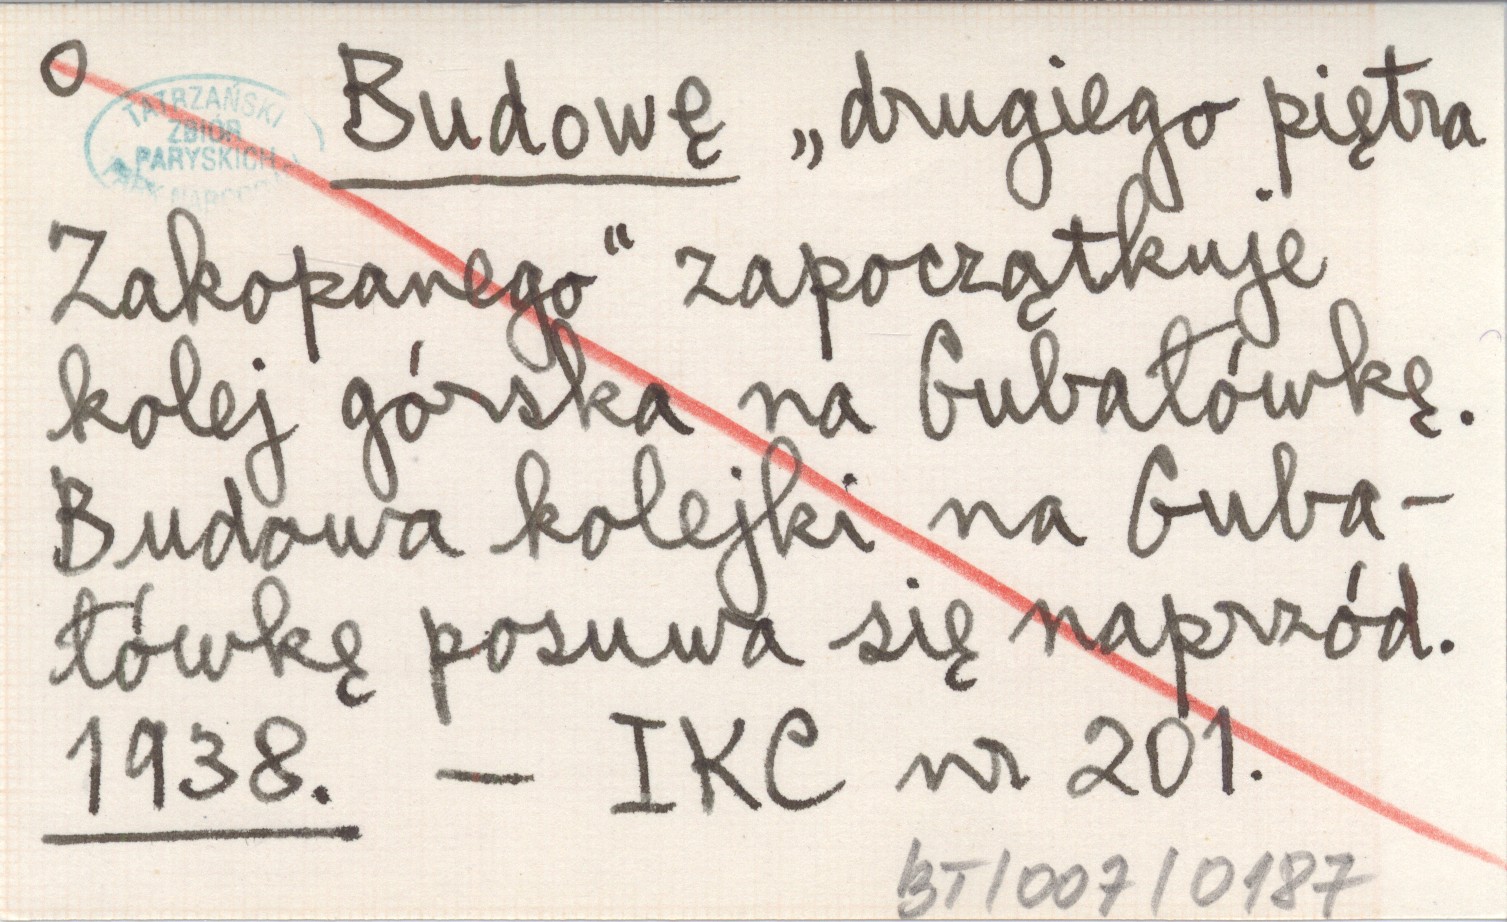 O
TATRZAŃSKI
ZBIÓR
PARYSKICH
Budowę „drugiego piętra
Zakopanego“ zapoczątkuje
kolej górska na Gubałówkę.
Budowa kolejki na Guba-
łówkę posuwa się naprzód.
1938. — IKC nr 201.
BT/007/0187